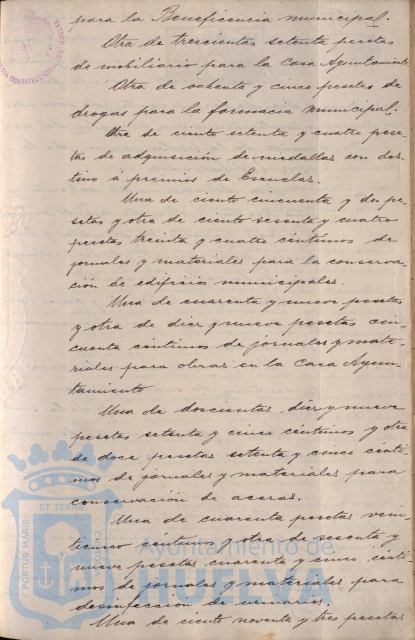 para la Beneficencia municipal.
Otra de trescientas setenta pesetas
de mobiliario para la Casa Ayuntamiento
Otra de ochenta y cinco pesetas de
drogas para la farmacia municipal.
Otra de ciento setenta y cuatro pese-
tas de adquisición de medallas con des-
tino á premios de Escuelas.
Una de ciento cincuenta y dos pe-
setas y otra de ciento sesenta y cuatro
pesetas treinta y cuatro céntimos de
jornales y materiales para la conserva-
ción de edificios municipales.
Una de cuarenta y nueve pesetas
y otra de diez y nueve pesetas cin-
cuenta céntimos de jornales y mate-
riales para obras en la Casa Ayun-
tamiento
Una de doscientas diez y nueve
pesetas setenta y cinco céntimos y otra
de doce pesetas setenta y cinco cénti-
mos de jornales y materiales para
conservación de aceras.
Una de cuarenta pesetas vein
ticinco céntimos y otra de sesenta y
nueve pesetas cuarenta y cinco cénti-
mos de jornales y materiales para
desinfección de urinarios.
Una de ciento noventa y tres pesetas
PORTUS MARIS
ET TERRA
Ayuntamiento de
HUELVA